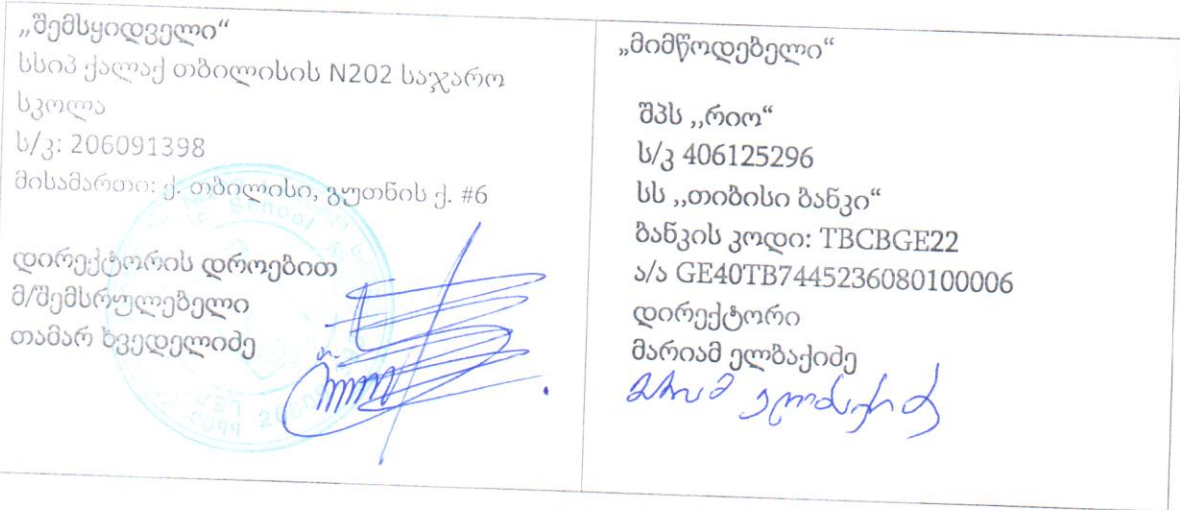 „შემსყიდველი“
სსიპ ქალაქ თბილისის N202 საჯარო
სკოლა
ს/კ: 206091398
მისამართი: ქ. თბილისი, გუთნის ქ. #6
დირექტორის დროებით
მ/შემსრულებელი
თამარ ხვედელიძე
„მიმწოდებელი“
შპს ,,რიო“
ს/კ 406125296
სს ,,თიბისი ბანკი“
ბანკის კოდი: TBCBGE22
ა/ა GE40TB7445236080100006
დირექტორი
მარიამ ელბაქიძე